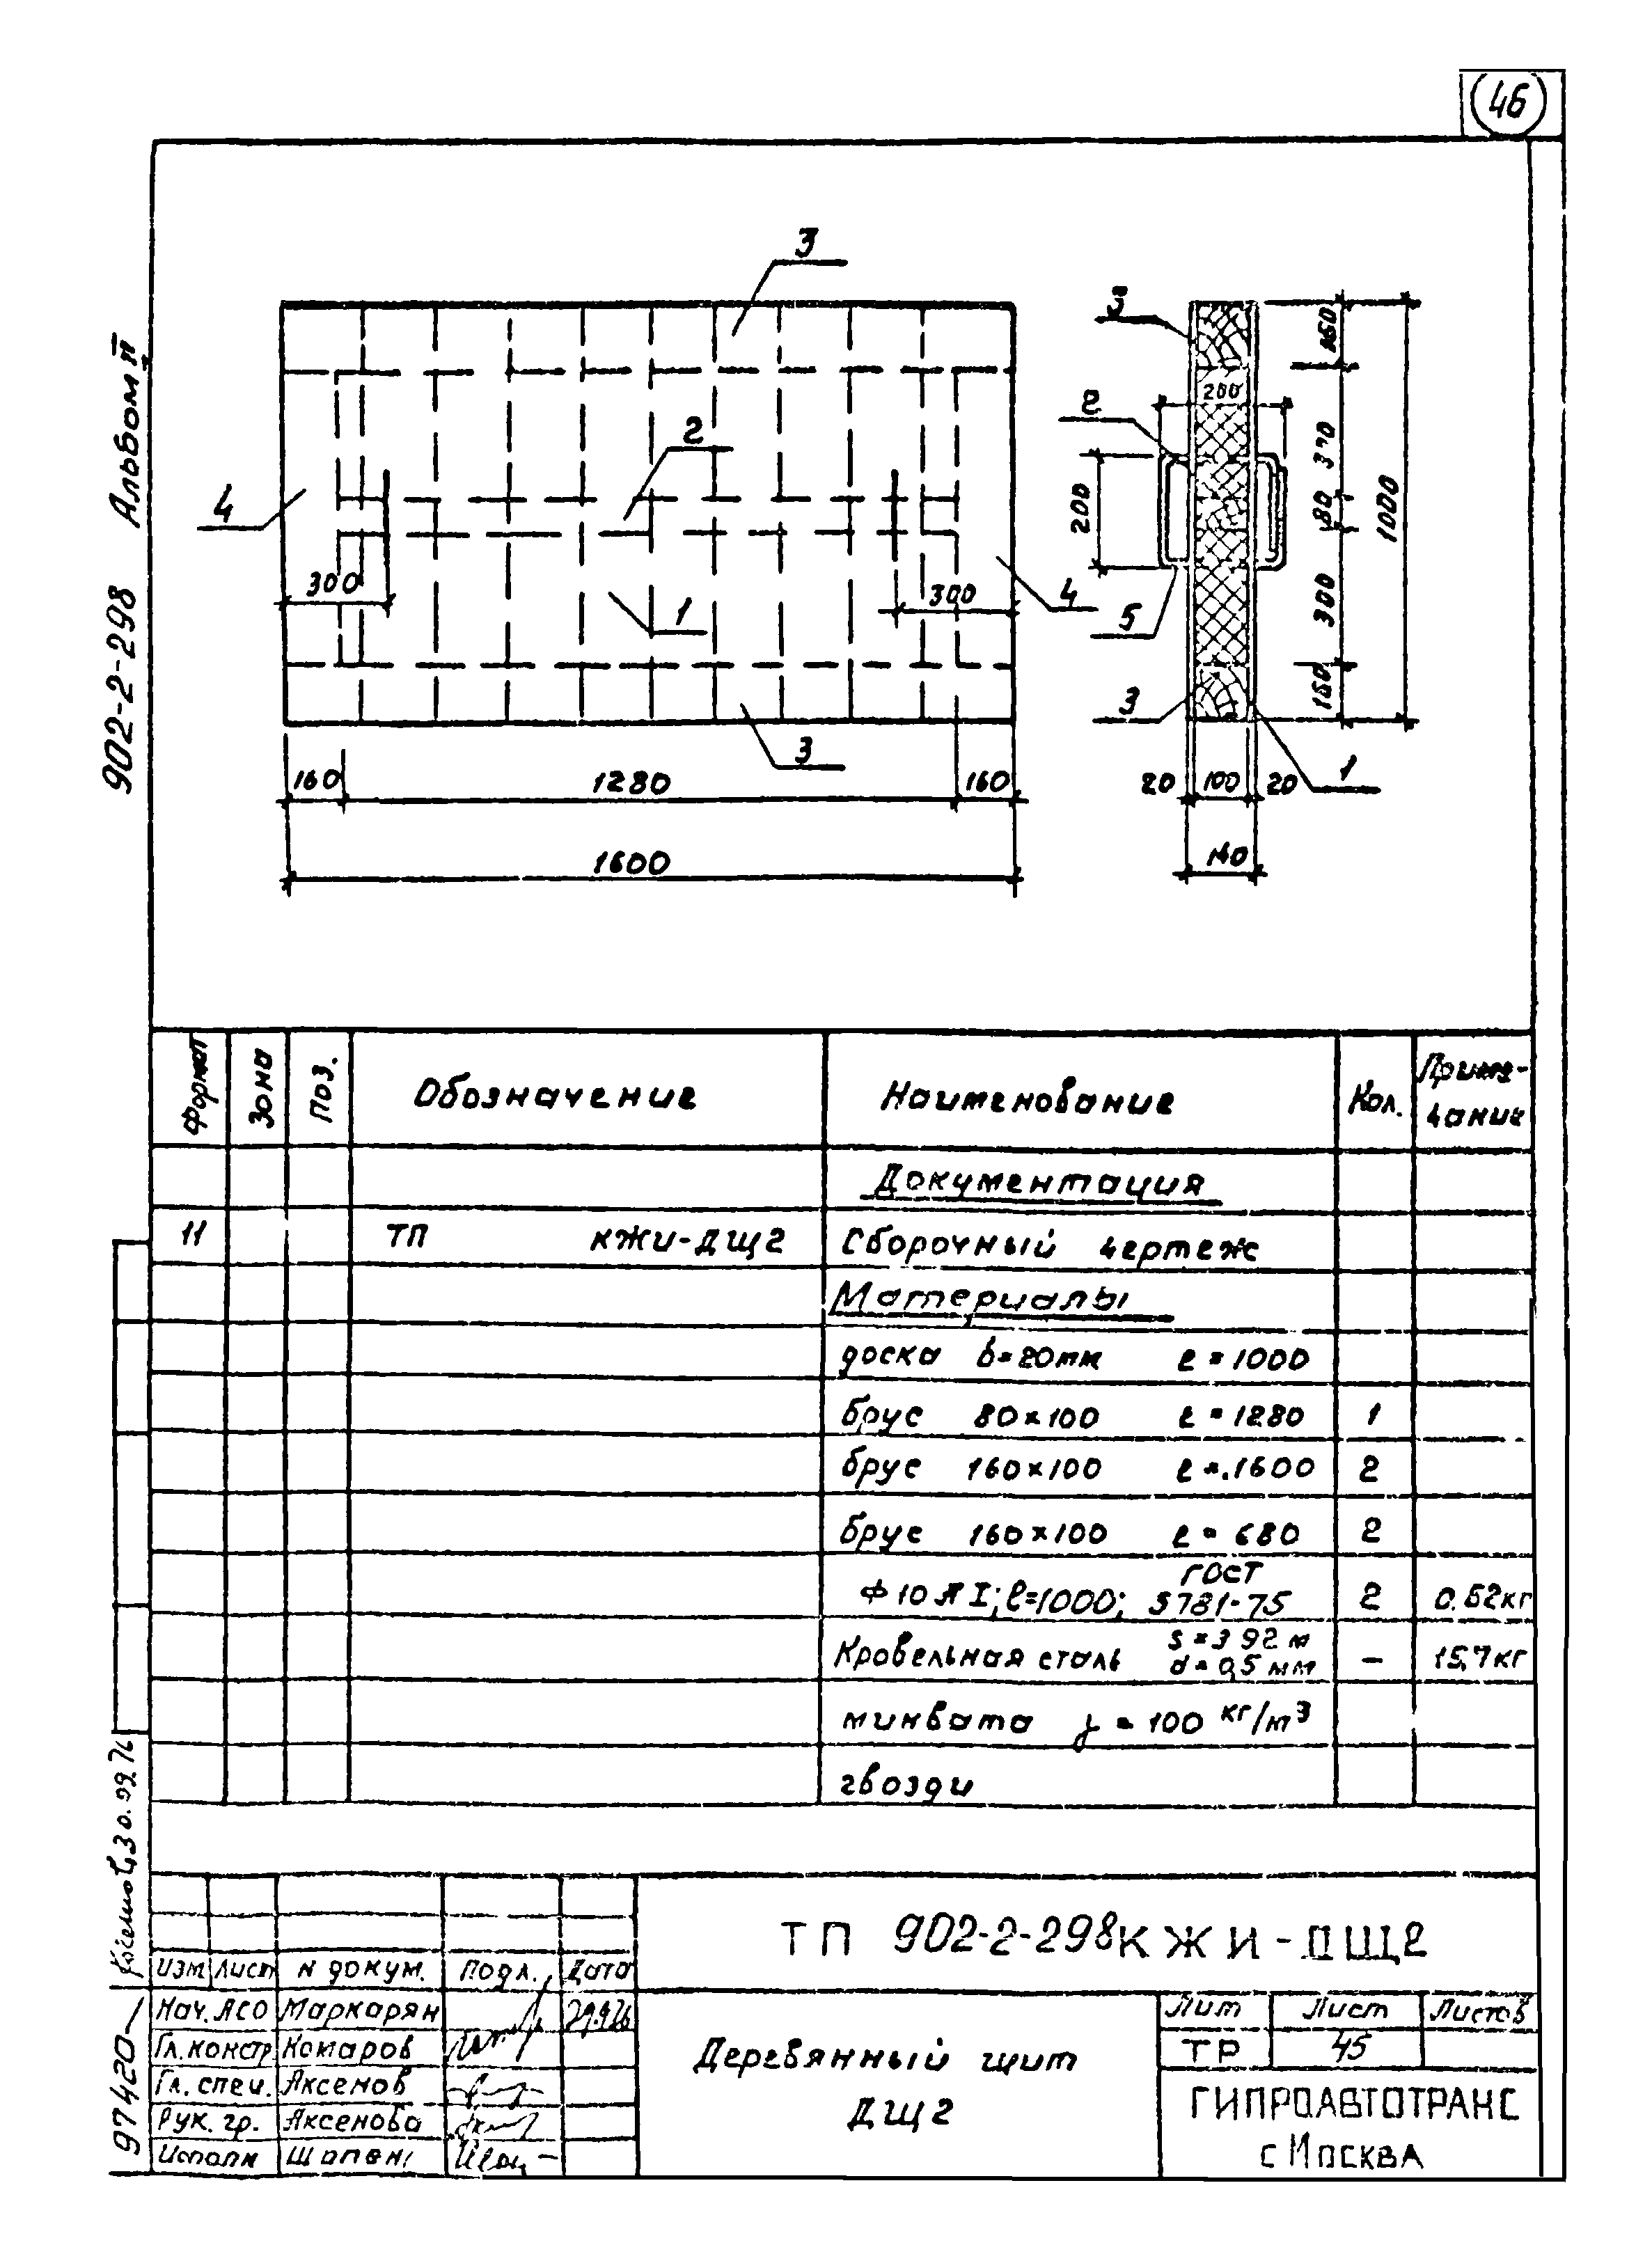 46
902-2-298 Альбом II
3
3
160
2
200
2
370
4
200
80
1000
300
300
4
1
5
300
3
160
3
160
1280
160
20
100
20
1
1600
140
Формат
Зона
Поз.
Обозначение
Наименование
Кол.
Примечание
Документация
11 ТП КЖИ-ДЩ2 Сборочный чертеж
Материалы
доска b=20мм ℓ=1000
брус 80×100 ℓ=1280 1
брус 160×100 ℓ=1600 2
брус 160×100 ℓ=680 2
Ф10 АI; ℓ=1000; ГОСТ 5781-75 2 0.62кг
Кровельная сталь S=3.92 м d=0,5 мм - 15,7кг
минвата γ = 100 кг/м³
гвозди
97420
ТП 902-2-298 КЖИ-ДЩ2
Изм Лист N докум. Подп. Дата
Нач. АСО Маркарян
Гл. констр Комаров
Гл. спец. Аксенов
Рук. гр. Аксенова
Исполн
Деревянный щит
ДЩ2
Лит Лист Листов
ТР 45
ГИПРОАВТОТРАНС
г Москва